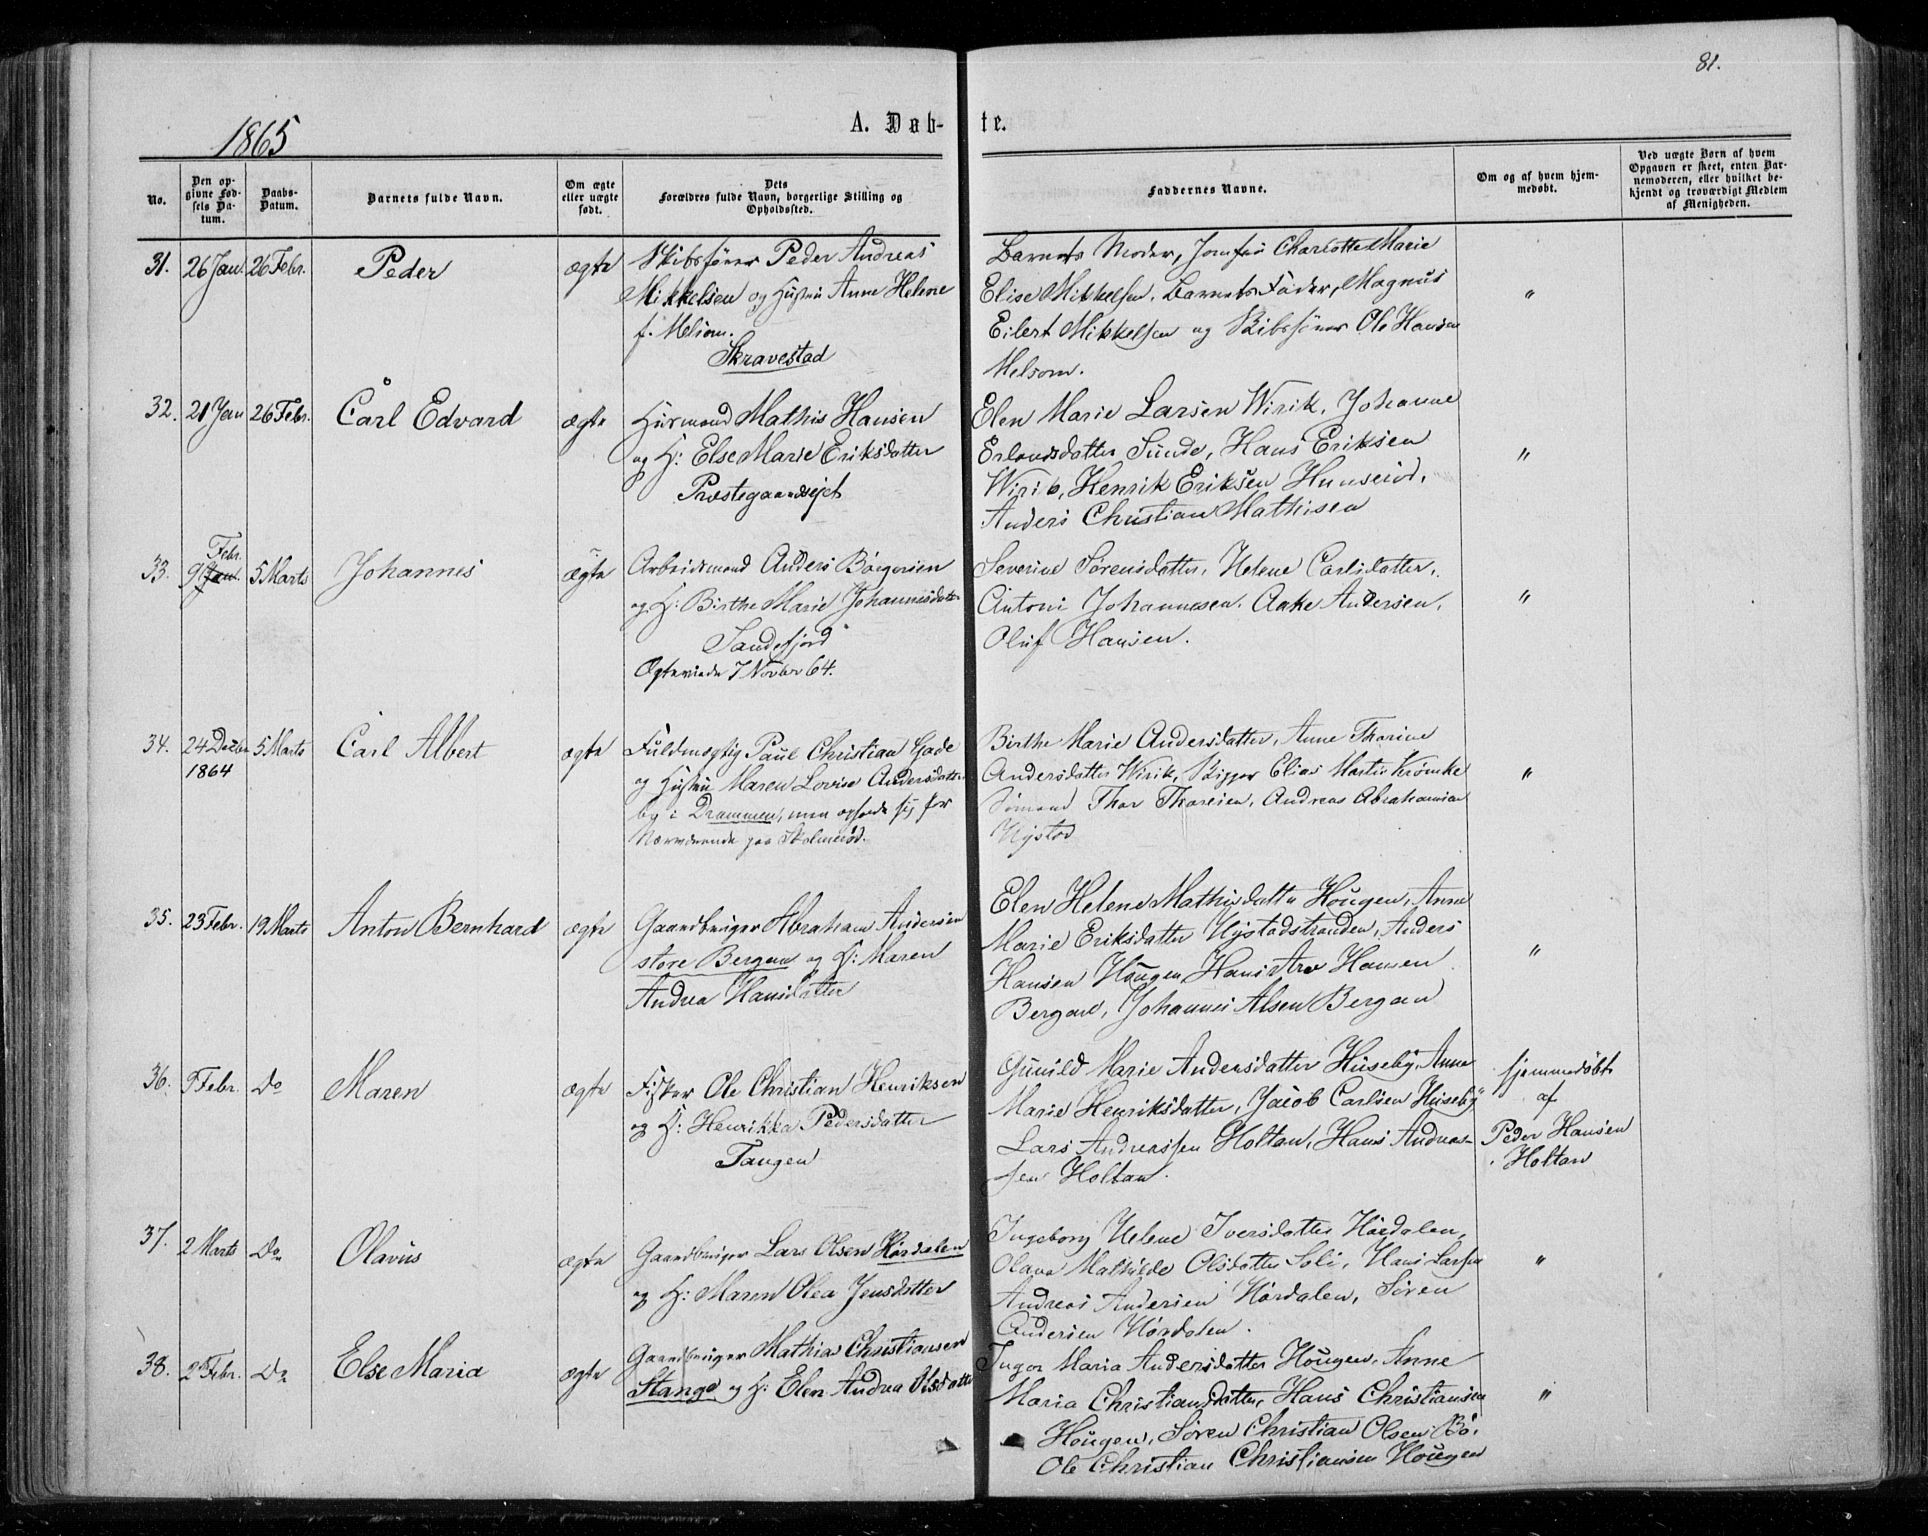 81.
1865
A. Døb- te.
No.
Den op-
givne Fød-
sels Da-
tum.
Daabs-
Datum.
Barnets fulde Navn.
Om ægte
eller uægte
født.
Dets
Forældres fulde Navn, borgerlige Stilling og
Opholdssted.
Faddernes Navne.
Om og af hvem hjem-
medøbt.
Ved uægte Børn af hvem
Opgaven er skeet, enten Bar-
nemoderen, eller hvilket be-
kjendt og troværdigt Medlem
af Menigheden.
31. 26 Jan. 26 Febr. Peder ægte
Skibsfører Peder Andreas
Mikkelsen og Hustru Anne Helene
f. Melsom.
Skravestad
Barnets Moder, Jomfru Charlotte Marie
Elise Mikkelsen, Barnets Fader, Magnus
Eilert Mikkelsen og Skibsfører Ole Hansen
Melsom.
"
32. 21 Jan 26 Febr. Carl Edvard ægte
Huusmand Mathis Hansen
og H: Else Marie Eriksdatter
Præstegaardsejet
Elen Marie Larsen Wirik, Johanne
Erlandsdatter Sunde, Hans Eriksen
Wirik, Henrik Eriksen Hunserød,
Anders Christian Mathisen
"
33. 9 Febr. 5 Marts Johannes ægte
Arbeidsmand Anders Børgersen
og H: Birthe Marie Johannesdatter
Sandefjord
Ægteviede 7 Novbr 64.
Severine Sørensdatter, Helene Carlsdatter,
Antoni Johannesen, Aake Andersen,
Oluf Hansen.
"
34. 24 Decbr 5 Marts Carl Albert ægte
1864
Fuldmægtig Paul Christian Gade
og Hustru Maren Lovise Andersdatter
by i Drammen, men opholde sig for
Nærværende paa Skolmerød.
Birthe Marie Andersdatter, Anne Thorine
Andersdatter Wirik, Skipper Elias Martin Krømke
Sømand Thor Thorsen, Andreas Abrahamsen
Nystad
"
35. 23 Febr. 19 Marts Anton Bernhard ægte
Gaardbruger Abraham Andersen
store Bergan og H: Maren
Andrea Hansdatter
Elen Helene Mathisdatter Hougen, Anne
Marie Eriksdatter Nystadstranden, Anders
Hansen Hougen, Hans Hansen
Bergan, Johannes Alsen Bergan
"
36. Febr. Do Maren ægte
Fisker Ole Christian Henriksen
og H: Henrikka Pedersdatter
Tangen
Gunild Marie Andersdatter Huseby, Anne
Marie Henriksdatter, Jacob Carlsen Huseby
Lars Andreassen Holtan, Hans Andreas-
sen Holtan.
hjemmedøbt
af
Peder Hansen
Holtan
37. 2 Marts Do Olavus ægte
Gaardbruger Lars Olsen Hørdalen
og H: Maren Olea Jensdatter
Ingeborg Helene Iversdatter Hørdalen,
Olava Mathilde Olsdatter Soli, Hans Larsen
Andreas Andersen Hørdalen, Søren
Andersen Hørdalen.
"
38. Febr. Do Else Maria ægte
Gaardbruger Mathias Christiansen
Stange og H: Elen Andrea Olsdatter
Inger Maria Andersdatter Hougen, Anne
Maria Christiansdatter, Hans Christiansen
Hougen, Søren Christian Olsen Bø,
Ole Christian Christiansen Hougen
"